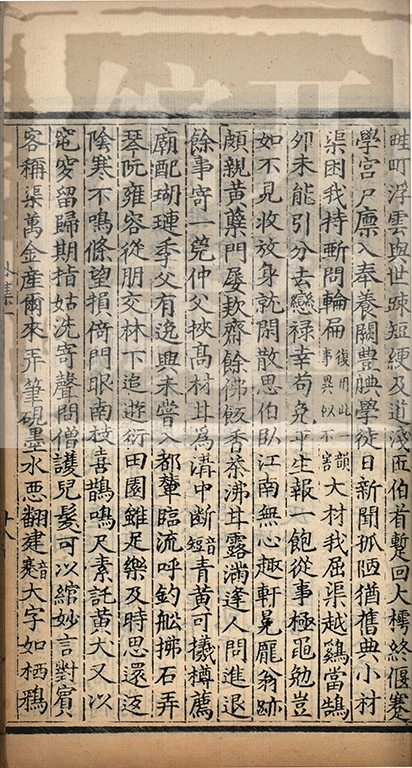 畦町浮雲與世疎短綆及道淺匠伯首蹔回大樗終偃蹇
學宮尸廪入奉養闕豊腆學徒日新聞孤陋猶舊典小材
渠困我持斲問輪扁復用此一韻事異似不害大材我屈渠越鷄當鵠
卵未能引分去戀禄幸苟免平生報一飽從事極黽勉豈
如不見收放身就閑散思伯臥江南無心趣軒冕龎翁跡
頗親黄蘗門屢欵齋餘佛飯香茶沸甘露滿逢人問進退
餘事寄一莞仲父挾髙材甘爲溝中斷音短青黄可犧樽薦
廟配瑚璉季父有逸興未甞入都輦臨流呼釣舩拂石弄
琴阮雍容從朋交林下追遊衍田園雖足樂及時思還返
陰寒不鳴條望損倚門眼南枝喜鵲鳴尺素託黄犬又以
窀穸留歸期指姑洗寄聲問僧護兒髮可以綰妙言對賓
客稱渠萬金産爾來弄筆硯墨水惡翻建音大字如栖鵶